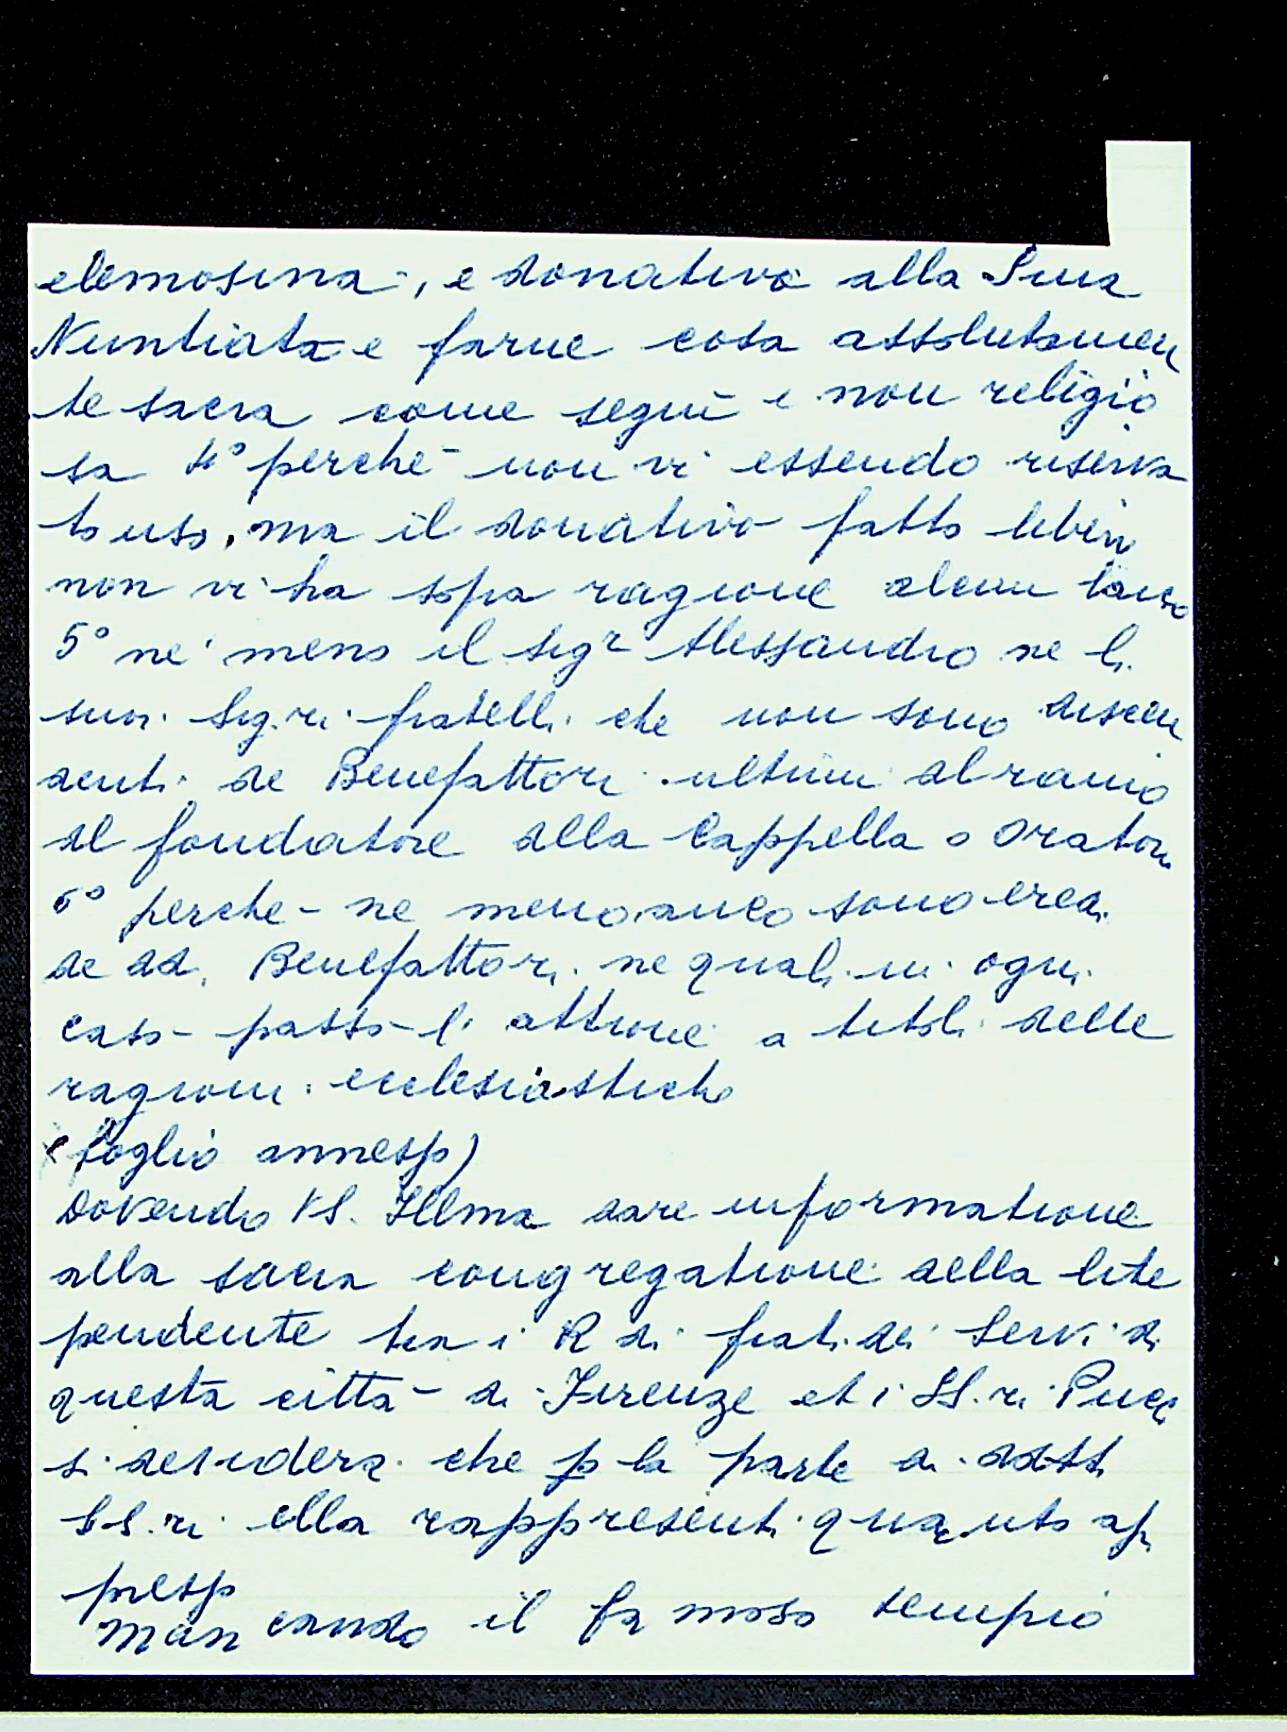 elemosina, e donativo alla S.ma
Nuntiata e farne cosa assolutamen
te sacra come seguì e non religio
sa 4° perchè non vi essendo riserva
to uso, ma il donativo fatto libero
non vi ha sopra ragione alcun laico
5° nè meno il Sigr Alessandro ne li
suoi Sig.ri fratelli che non sono discen
denti de Benefattori ultimi al ramo
del fondatore della Cappella o Orator
6° perche ne meno anco sono eredi
de dd. Benefattori ne quali in ogni
caso passò l'attione a titoli delle
ragioni ecclesiastiche
(foglio annesso)
Dovendo VS. Illma dare informatione
alla sacra congregatione della lite
pendente tra i R di frati dei Servi di
questa città di Firenze et i SS.ri Pucci
si desidera che p la parte di detti
SS.ri ella rappresenti quanto ap
presso
Mancando il famoso tempio